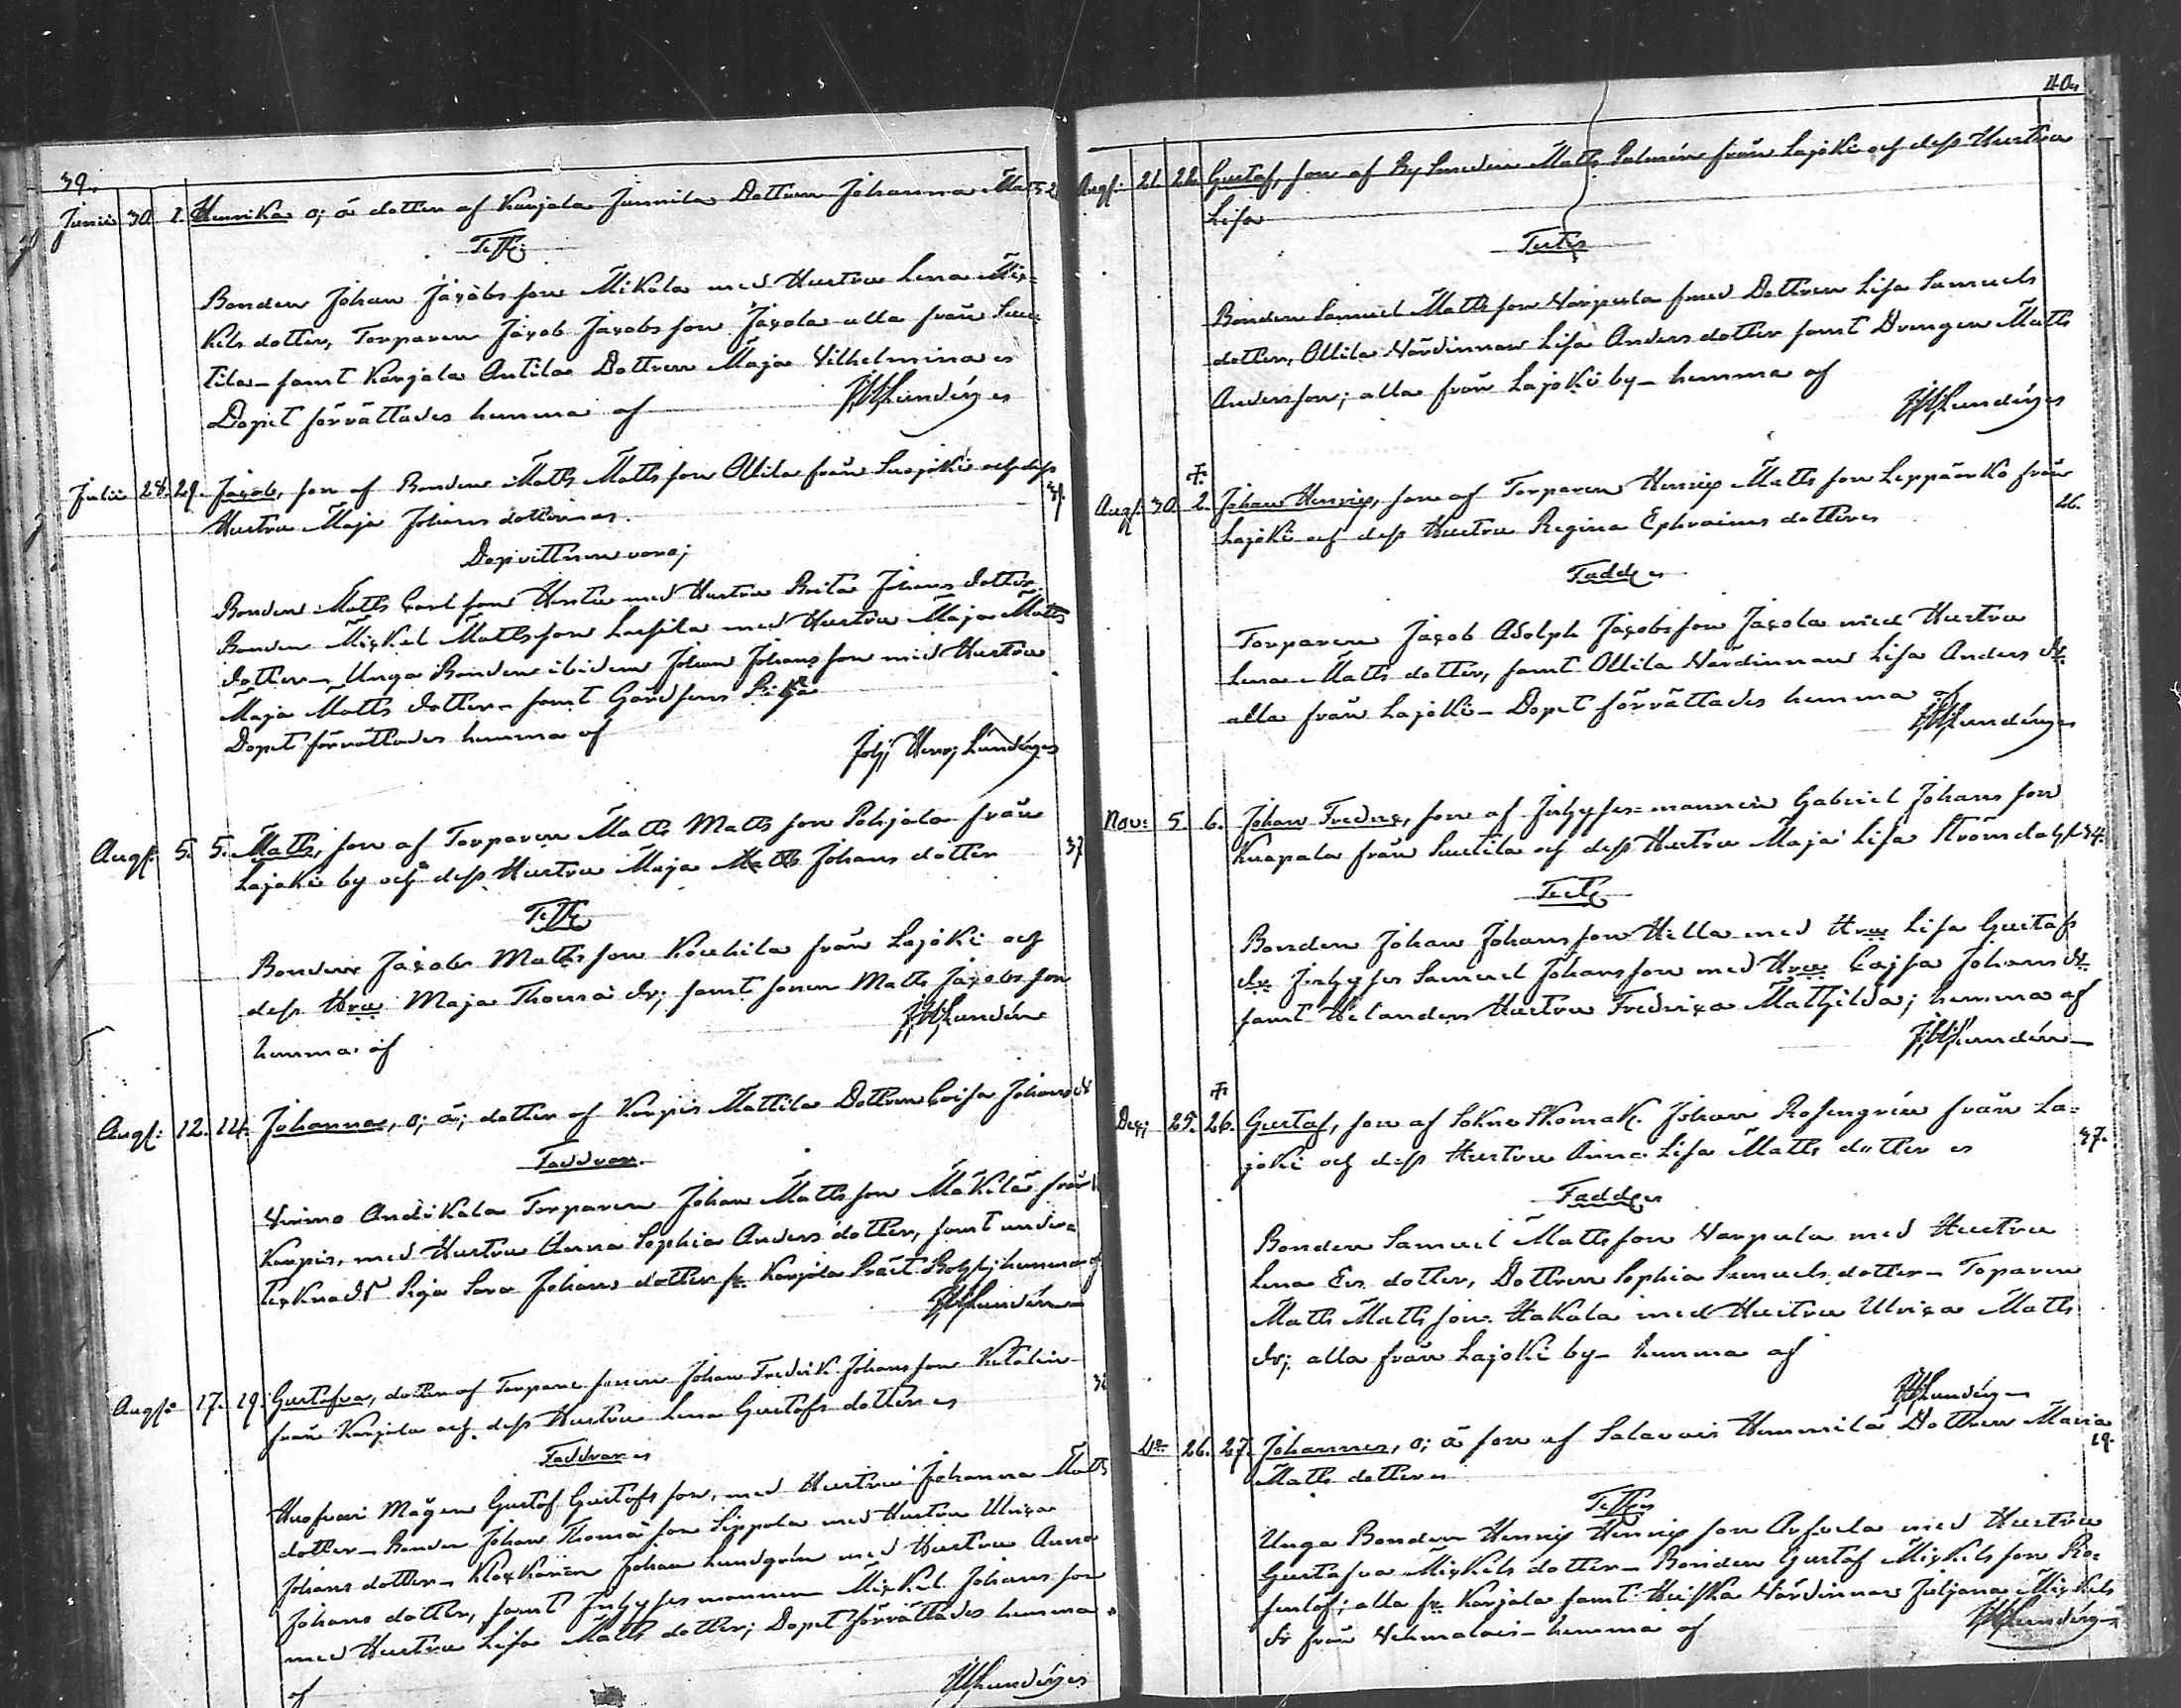 39.
Junii 30. 1. Henrika o; ä dotter af Karjala Junnila Dottren Johanna Matts
Test;
Bonden Johan Jacobsson Mikola med Hustru Lena Mic-
kels dotter, Torparen Jacob Jacobs son Jacola alla från Suu-
tila – samt Karjala Antila Dottren Maja Vilhelmina
Dopet förrättades hemma af JHLundén
Julii 28. 29. Jacob, son af Bonden Matts Matts son Ollila från Lajoki och dess 31.
Hustru Maja Johans dotter
Dopvittnen voro;
Bonden Matts Carl son med Hustru Brita Johans dotter
Bonden Mickel Mattsson Lassila med Hustru Maja Matts
dotter – Unga Bonden ibidem Johan Johans son med Hustru
Maja Matts dotter – samt Gårdsens Piga
Dopet förrättades hemma af
Joh; Henr; Lundén
Aug: 5. 5. Matts, son af Torparen Matts Matts son Pohjala från
Lajoki by och dess Hustru Maja Matts Johans dotter 37
Test
Bonden Jacob Matts son Kouhila från Lajoki och
dess Hru Maja Thoma dr; samt sonen Matts Jacobs son
hemma af JHLundén
Aug: 12. 14. Johanna, o; ä; dotter af Karpis Mattila Dottren Caisa Johans dr
Faddrar.
Virmo Andikala Torparen Johan Matts son Mäkilä från
Karpis, med Hustru Anna Sophia Anders dotter, samt under-
tecknads Piga Sara Johans dotter fr. Karjala Präst Bohl; hemma af
JHLundén
Aug: 17. 19. Gustafva, dotter af Torpare sonen Johan Fredrik Johans son
från Karjala och dess Hustru Lena Gustafs dotter
Faddrar
Mågen Gustaf Gustafs son, med Hustru Johanna Matts
dotter – Bonden Johan Thoma son Sippola med Hustru Ulrica
Johans dotter – Klockaren Johan Lundgrén med Hustru Anna
Johans dotter, samt Inhyses mannen Mickel Johans son
med Hustru Lisa Matts dotter; Dopet förrättades hemma
af JHLundén
40.
Aug: 21. 22. Gustaf, son af By Smeden Matts Palmén från Lajoki och dess Hustru
Lisa
Testes
Bonden Samuel Matts son Varpula med Dottren Lisa Samuels
dotter, Ollila Värdinnan Lisa Anders dotter samt Drengen Matts
Andersson; alla från Lajoki by – hemma af
JHLundén
Aug: 30. 2. Johan Henric, son af Torparen Henric Matts son Leppänko från 26.
Lajoki och dess Hustru Regina Ephraims dotter
Fadd;
Torparen Jacob Adolph Jacobsson Jacola med Hustru
Lena Matts dotter, samt Ollila Värdinnan Lisa Anders dr.
alla från Lajoki – Dopet förrättades hemma af
JHLundén
Nov: 5. 6. Johan Fredric, son af Inhyses-mannen Gabriel Johans son
Knapala från Suutila och dess Hustru Maja Lisa Strömdahl 34.
Test;
Bonden Johan Johans son Hella med Hru Lisa Gustafs
dr. Inhyses Samuel Johansson med Hru Cajsa Johans dr.
samt Helanders Hustru Fredrica Mathilda; hemma af
JHLundén
Dec; 25. 26. Gustaf, son af Sokne Skomak. Johan Rosengrén från La-
joki och dess Hustru Anna Lisa Matts dotter 37.
Fadd;
Bonden Samuel Matts son Varpula med Hustru
Lena Ers dotter, Dottren Sophia Samuels dotter – Toparen
Matts Matts son Hakala med Hustru Ulrica Matts
dr; alla från Lajoki by – hemma af
JHLundén
D:o 26. 27. Johannes, o; ä son af Salavais Hemmilä Dottren Maria
Matts dotter 19.
Testes
Unga Bonden Henric Henric son Arfvela med Hustru
Gustafva Mickels dotter – Bonden Gustaf Mickels son Ro-
senlöf; alla fr. Karjala samt Värdinnan Juljana Mickels
dr från Vehmalais – hemma af JHLundén